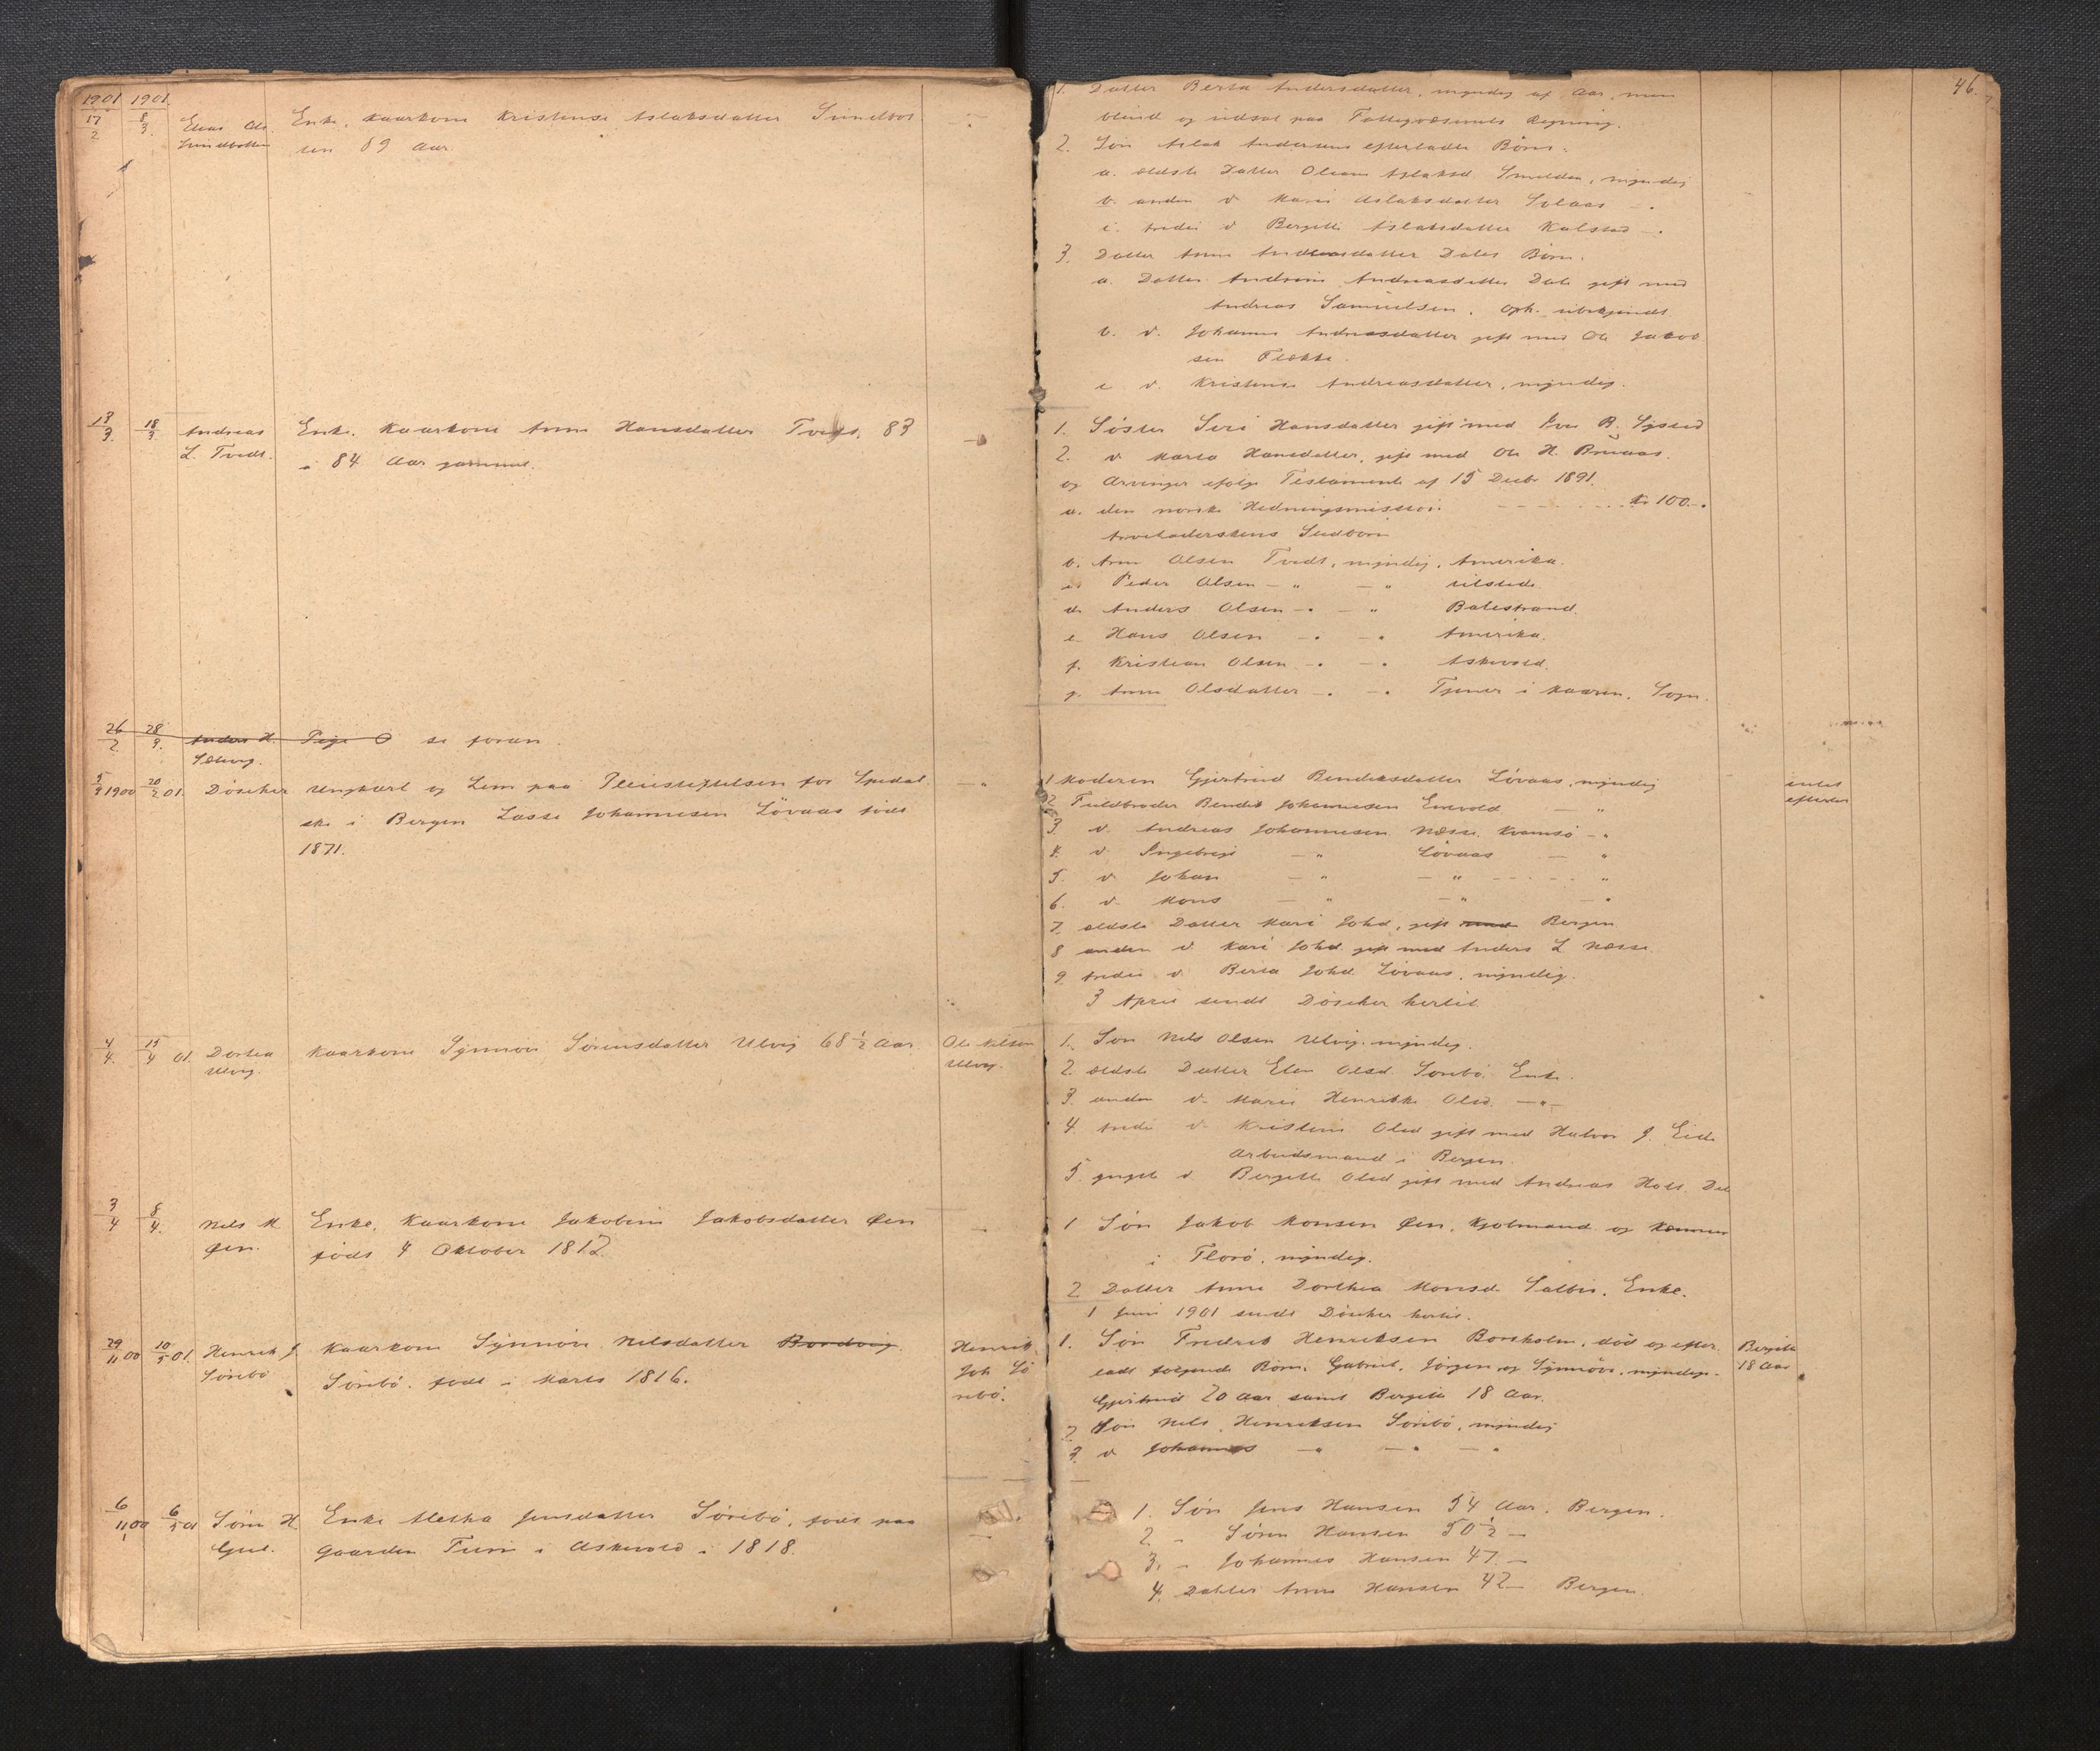 46.
1901 1901.
17/2 8/3. Elias Ols. Sundbotten
Enke, Kaarkone Kristense Aslaksdatter Sundbot
ten 89 Aar
1. Datter Berta Andersdatter, myndig af Aar, men
blind og udsat paa Fattigvæsenets Regning.
2. Søn Aslak Andersens efterladte Børn:
a. ældste Datter Oleane Aslaksd. myndig
b. anden d. Marie Aslaksdatter Solaas — "
c. tredie d Bergitte Aslaksdatter Kalstad — "
3. Datter Anne Andersdatter Dales Børn:
a. Datter Andrine Andreasdatter Dale gift med
Andreas Samuelsen, Oph. ubekjendt.
b. d. Johanne Andreasdatter gift med Ole Jakob
sen Flekke.
c d. Kristense Andreasdatter, myndig.
13/3. 18/3 Andreas L. Tvedt.
Enke, Kaarkone Anne Hansdatter Tvedt, 83
i 84 Aar gammel.
1. Søster Siri Hansdatter gift med Iver R. Systad
2. d Marta Hansdatter, gift med Ole H.
og Arvinger ifølge Testamente af 15 Decbr 1891.
a. den norske Hedningemission Kr 100.
Arveladerskens Stedbørn
b. Arne Olsen Tvedt, myndig, Amerika.
c. Peder Olsen — " — " tilstede.
d. Anders Olsen — " — " Balestrand.
e. Hans Olsen — " — " Amerika.
f. Kristian Olsen — " — " Askevold.
g. Anne Olsdatter — " — " Tjener i Sogn.
26/2. 28/3. Anders H. Solberg.
Pige O se foran.
5/9 1900 20/2 01. Døscher
Ungkarl og Lem paa Pleiestiftelsen for Spedal
ske i Bergen Lasse Johannesen Løvaas født
1871.
1 Moderen Gjertrud Bendiksdatter Løvaas, myndig
2. Fuldbroder Bendik Johannesen — "
3. d. Andreas Johannesen Næsse, Kvamsø — "
4. d Ingebrigt — " Løvaas — "
5. d Johan — " — " "
6. d. Mons — " — " — "
7. ældste Datter Mari Johd, gift med Bergen
8 anden d. Kari Johd gift med Anders L Næsse
9 tredie d. Berta Johd Løvaas, myndig.
3 April sendt Døscher hertil
intet
efterladt
4/4. 15/4 01. Dortea Ulvig.
Kaarkone Synnøve Sørensdatter Ulvig 68 ½ Aar.
Ole Nilsen
Ulvig.
1. Søn Nils Olsen Ulvig, myndig.
2. ældste Datter Elen Olsd. Sørebø. Enke.
3. anden d. Marie Henrikke Olsd. — " —
4. tredie d. Kristine Olsd gift med Halvor J. Eide
Arbeidsmand i Bergen.
5. yngste d. Bergitte Olsd gift med Andreas
3/4 8/4. Nils M Øen.
Enke, Kaarkone Jakobine Jakobsdatter Øen
født 4 Oktober 1812.
1 Søn Jakob Monsen Øen, Kjøbmand og
i Florø, myndig.
2 Datter Anne Dorthea Monsd. Salbu. Enke.
1 Juni 1901 sendt Døscher hertil.
29/11 00 10/5 01. Henrik J Sørebø
Kaarkone Synnøve Nilsdatter Bordvig
Sørebø, født i Marts 1816.
Henrik
Joh Sø
rebø.
1. Søn Fredrik Henriksen Borsholm, død og efter
ladt følgende Børn: Gabriel, Jørgen og Synnøve, myndige.
Gjertrud 20 Aar samt Bergitte 18 Aar.
Bergitte
18 Aar
2 Søn Nils Henriksen Sørebø, myndig
3. d Johannes — " — " — "
6/11 00 6/5 01 Søren H
Enke Aletha Jensdatter Sørebø, født paa
Gaarden i Askevold i 1818.
1. Søn Jens Hansen 54 Aar. Bergen.
2 - Søren Hansen 50 ½ —
3. - Johannes Hansen 47. —
4. Datter Anne Hansen 42 — Bergen.